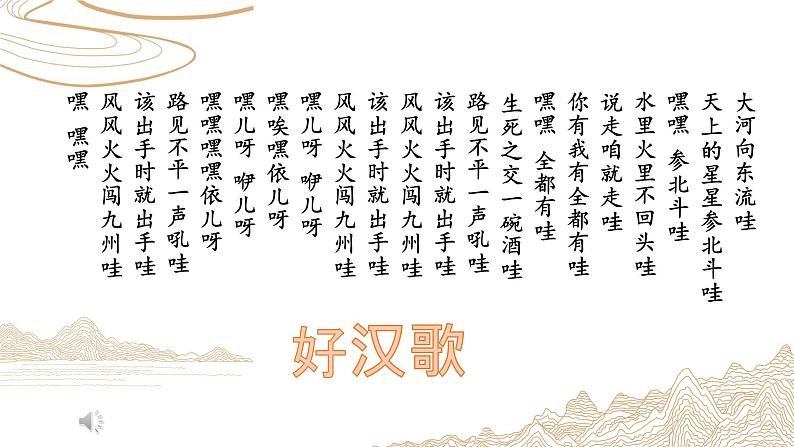 大河向东流哇
天上的星星参北斗哇
嘿嘿 参北斗哇
水里火里不回头哇
说走咱就走哇
你有我有全都有哇
嘿嘿 全都有哇
生死之交一碗酒哇
路见不平一声吼哇
该出手时就出手哇
风风火火闯九州哇
该出手时就出手哇
风风火火闯九州哇
嘿儿呀 咿儿呀
嘿唉嘿依儿呀
嘿儿呀 咿儿呀
嘿嘿嘿嘿依儿呀
路见不平一声吼哇
该出手时就出手哇
风风火火闯九州哇
嘿 嘿嘿
好汉歌